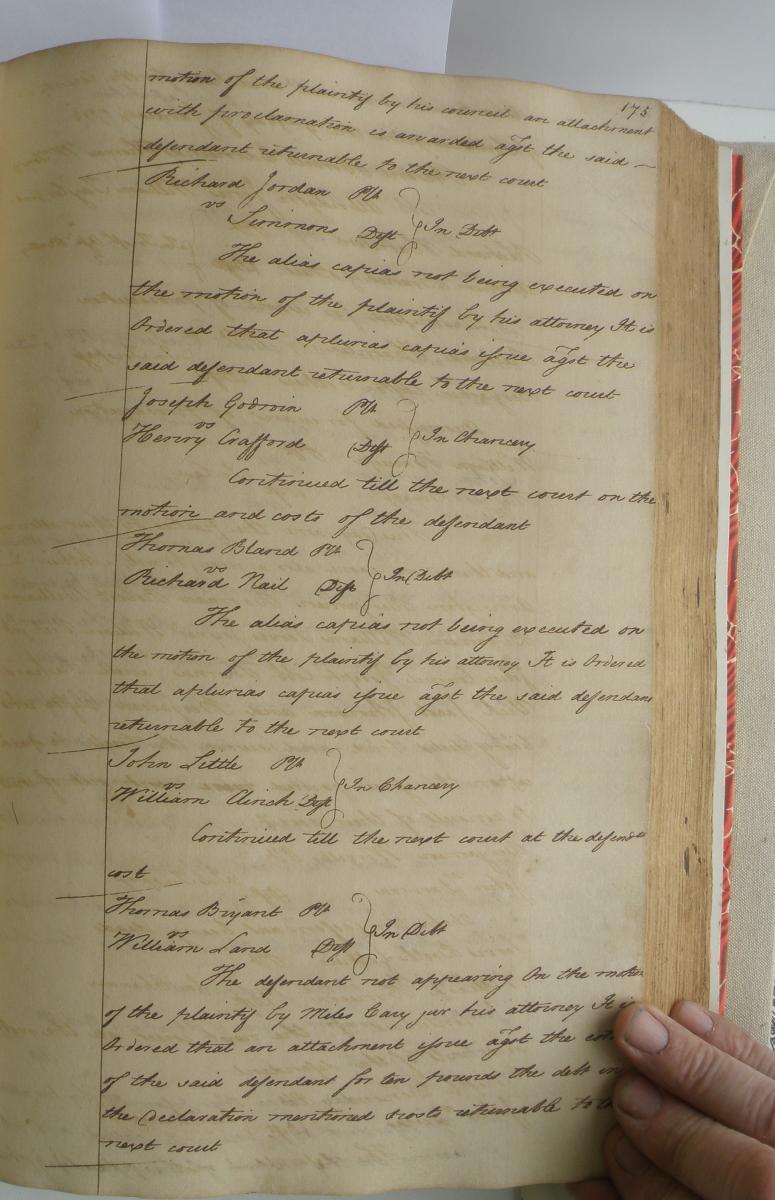 175
motion of the plaintif by his council an attachment
with proclamation is awarded agst the said —
defendant returnable to the next court
Richard Jordan Plt
vs In Debt
Simmons Deft
The alias capias not being executed on
the motion of the plaintif by his attorney It is
Ordered that aplurias capias issue agst the
said defendant returnable to the next court
Joseph Godwin Plt
vs In Chancery
Henry Crafford Deft
Continued till the next court on the
motion and costs of the defendant
Thomas Bland Plt
vs In Debt
Richard Nail Deft
The alias capias not being executed on
the motion of the plaintif by his attorney It is Ordered
that aplurias capias issue agst the said defendant
returnable to the next court
John Little Plt
vs In Chancery
William Clinch Deft
Continued till the next court at the defend
cost
Thomas Bryant Plt
vs In Debt
William Land Deft
The defendant not appearing On the motion
of the plaintif by Miles Cary jur his attorney It is
Ordered that an attachment issue agst the
of the said defendant for ten pounds the debt in
the Declaration mentioned &costs returnable to
next court